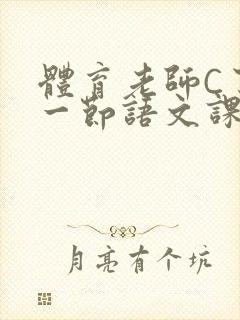 體育老師C
一節語文課
月亮有个坑